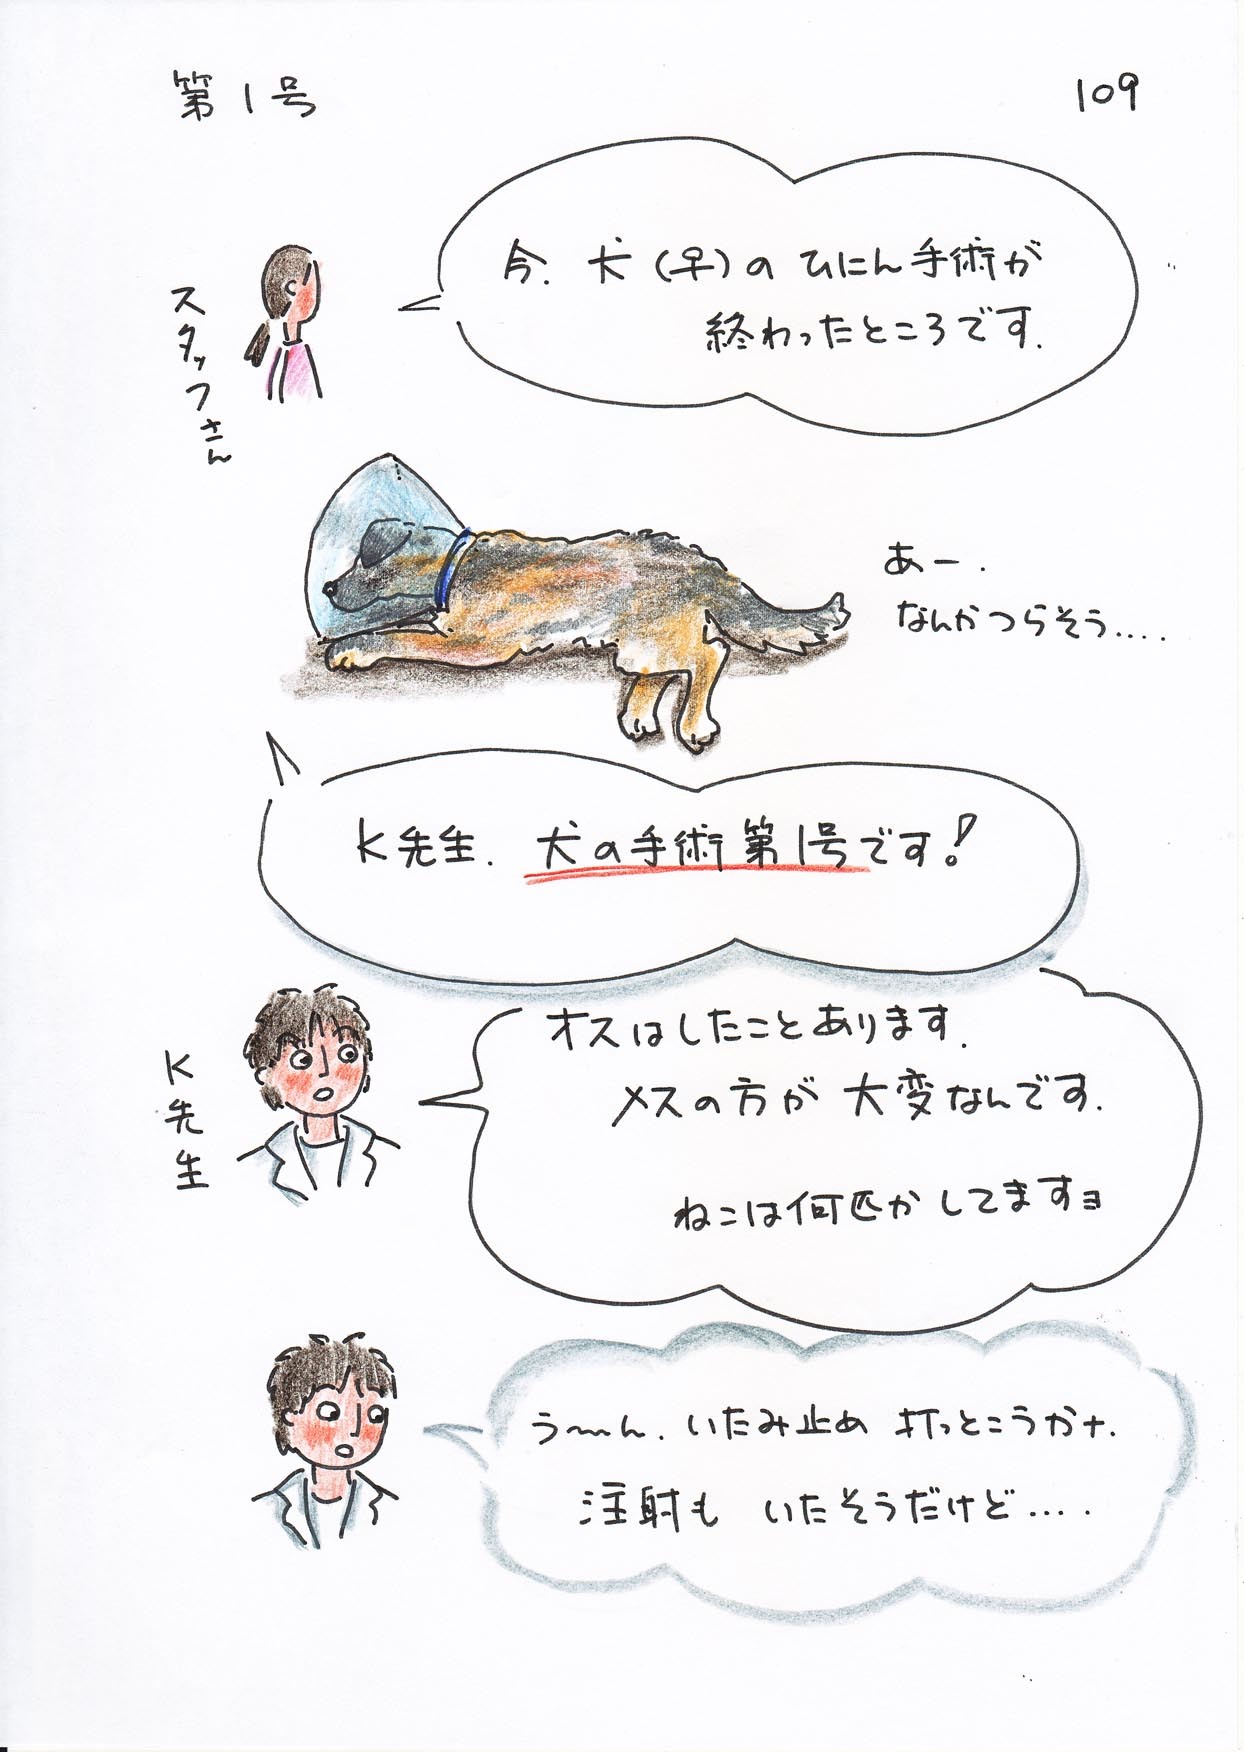 第1号
109
今、犬(♀)のひにん手術が
終わったところです.
スタッフさん
あー.
なんかつらそう....
K先生. 犬の手術第1号です!
K先生
オスはしたことあります.
メスの方が 大変なんです.
ねこは何匹かしてますヨ
う〜ん. いたみ止め 打っとこうかナ.
注射も いたそうだけど....